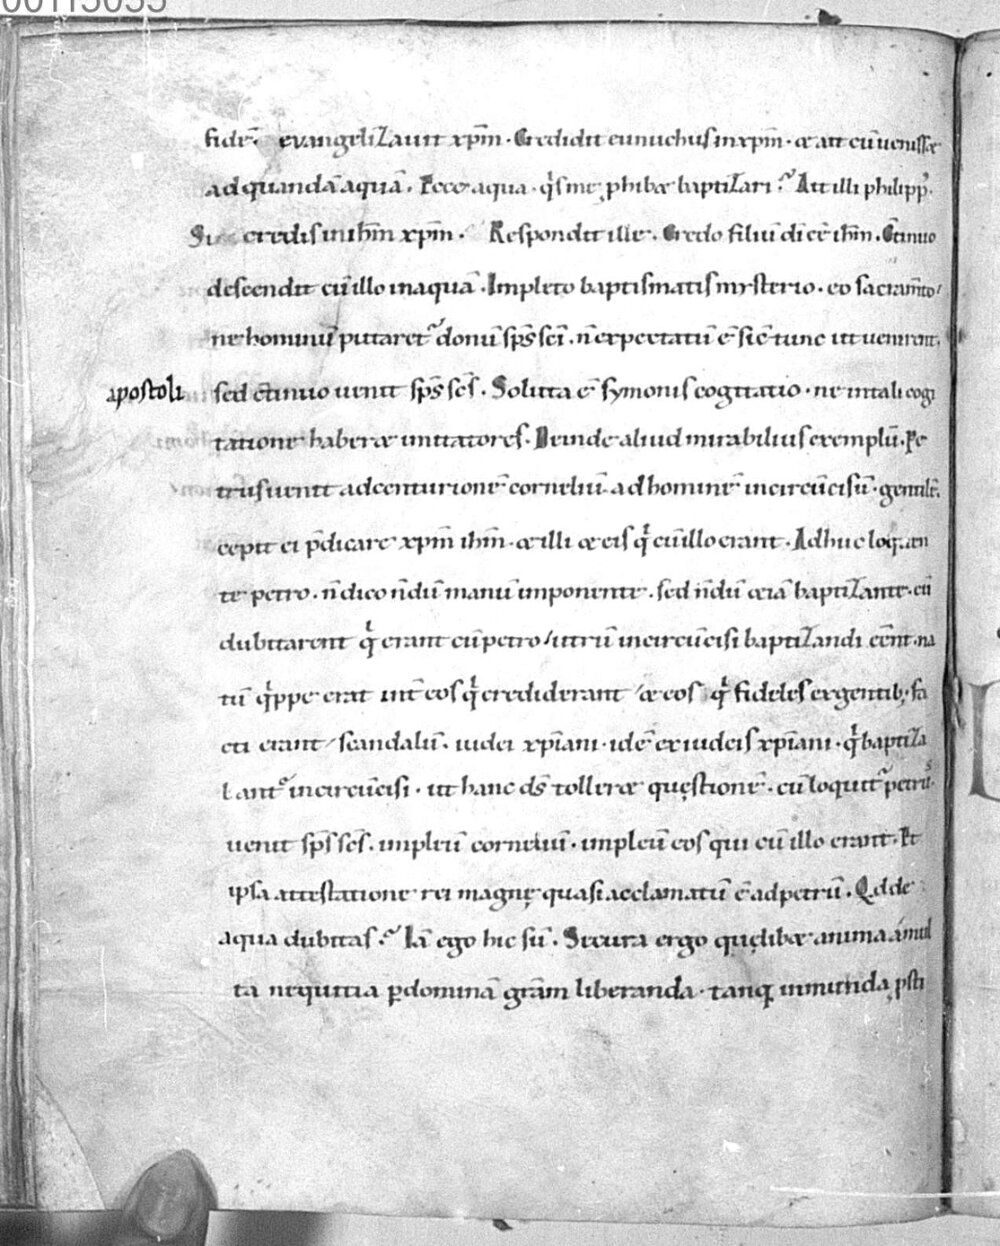 00115035
fidē. evangelizauit xp̄m. Credidit eunuchus in xp̄m. & ait cū uenisset
ad quandā aquā. Ecce aqua. q's me ꝓhibet baptizari? Ait illi philipp'.
Si credis in ihm̄ xp̄m. Respondit ille. Credo filiū dī eē ihm̄. Ctinuo
descendit cū illo in aquā. Impleto baptismatis mysterio. eo sacram̄to
ne hominū putaret' donū sp̄s sc̄i. n̄ expectatū ē sic̄ tunc ut uenirent
apostoli
sed ctinuo uenit sp̄s sc̄s. Soluta ē symonis cogitatio. ne in tali cogi
tatione haberet imitatores. Deinde aliud mirabilius exemplū. Pe
trus uenit ad centurionē corneliū ad hominē incircūcisū. gentilē.
cepit ei p̄dicare xp̄m ihm̄. & illi & eis q' cū illo erant. Adhuc loq̄n
te petro. n̄ dico n̄dū manū imponente. sed n̄dū etiā baptizante. cū
dubitarent q' erant cū petro utrū incircūcisi baptizandi eēnt. na
tū q'ppe erat int̄ eos q' crediderant & eos q' fideles ex gentib; fa
cti erant scandalū. iudei xp̄iani. idē ex iudeis xp̄iani. q' baptiza
bant' incircūcisi. ut hanc d̄s tolleret quęstionē. cū loquit' petrus.
uenit sp̄s sc̄s. impleū corneliū. impleū eos qui cū illo erant. Et
ipsa attestatione rei magnę quasi acclamatū ē ad petrū. Qd de
aqua dubitas? Iā ego hic sū. Secura ergo quęlibet anima á mul
ta nequitia ꝑ dominā grām liberanda. tanq̄ inmunda ꝓsti